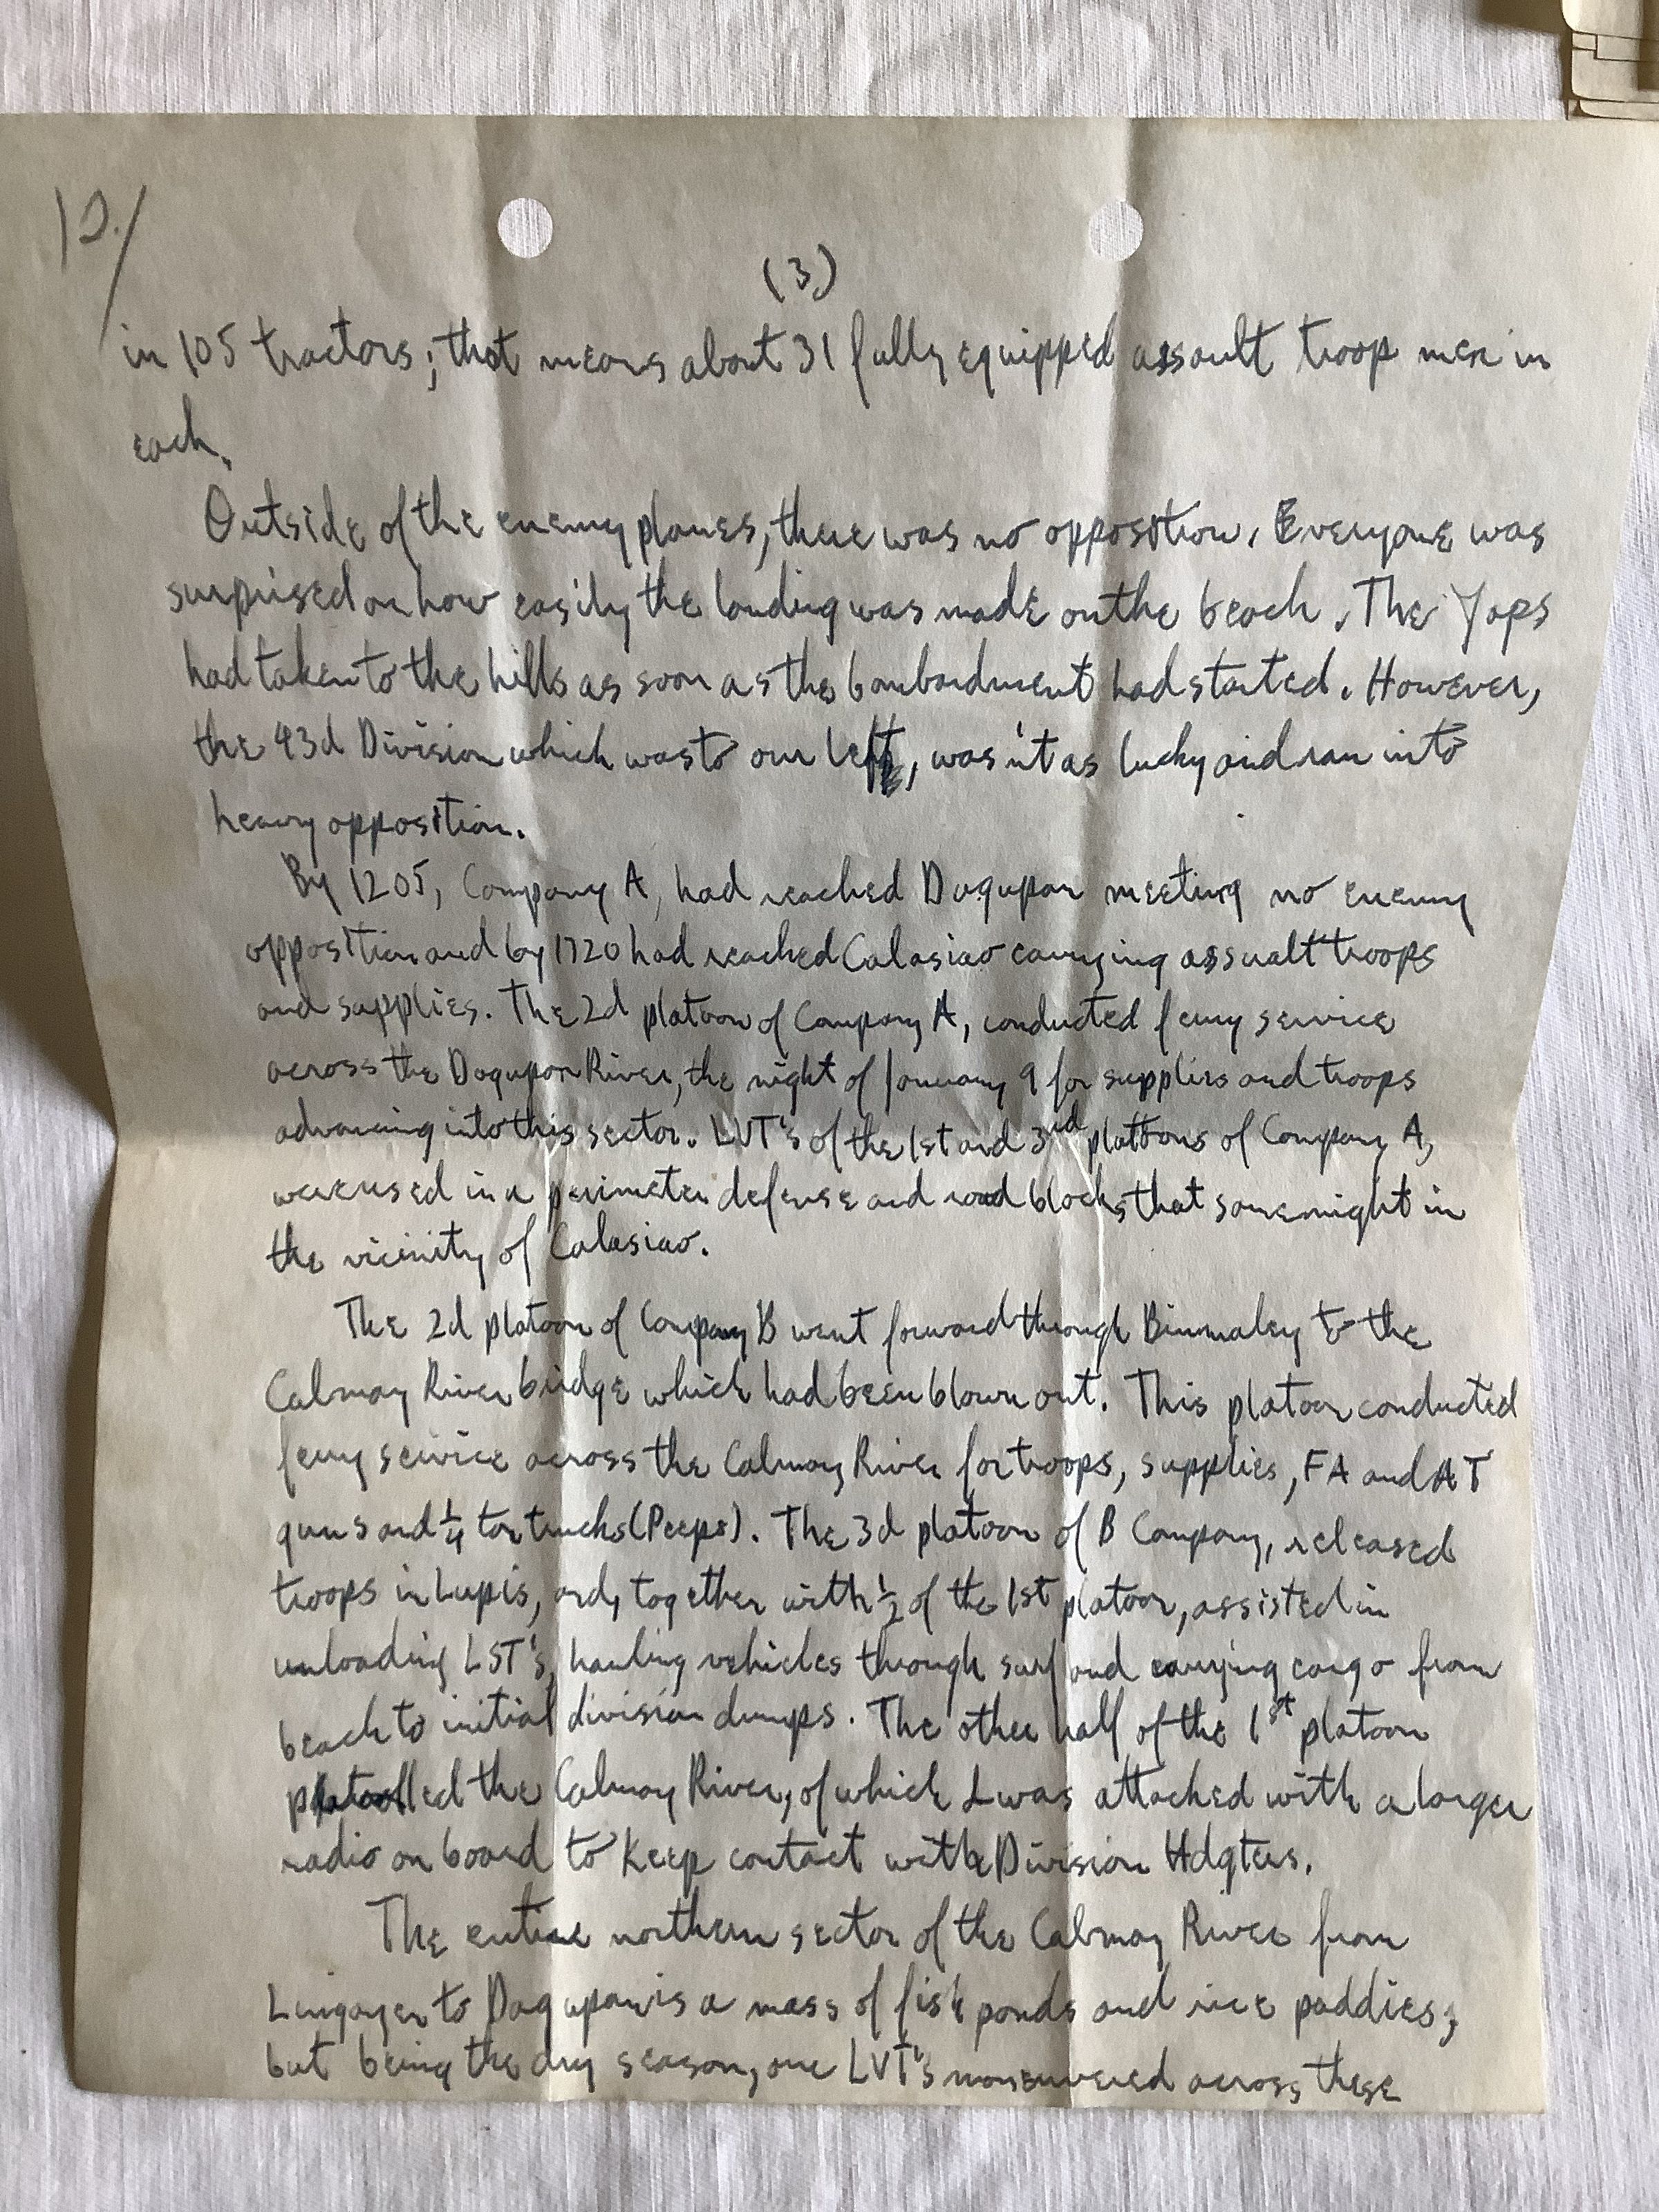 12./
(3)
in 105 tractors; that means about 31 fully equipped assault troop men in
each.
Outside of the enemy planes, there was no opposition. Everyone was
surprised on how easily the landing was made on the beach. The Japs
had taken to the hills as soon as the bombardment had started. However,
the 43d Division which was to our left, wasn't as lucky and ran into
heavy opposition.
By 1205, Company A, had reached Dagupan meeting no enemy
opposition and by 1720 had reached Calasiao carrying assualt troops
and supplies. The 2d platoon of Company A, conducted ferry service
across the Dagupan River, the night of January 9 for supplies and troops
advancing into this sector. LVT's of the 1st and 3rd plattons of Company A,
were used in a perimeter defense and road blocks that same night in
the vicinity of Calasiao.
The 2d platoon of Company B went forward through Binmaley to the
Calmay River bridge which had been blown out. This platoon conducted
ferry service across the Calmay River for troops, supplies, FA and AT
guns and 1/4 ton trucks (Peeps). The 3d platoon of B Company, released
troops in Lupis, and, together with 1/2 of the 1st platoon, assisted in
unloading LST's, hauling vehicles through surf and carrying cargo from
beach to initial division dumps. The other half of the 1st platoon
patrolled the Calmay River, of which I was attached with a larger
radio on board to keep contact with Division Hdqters.
The entire northern sector of the Calmay River from
Lingayen to Dagupan is a mass of fish ponds and rice paddies;
but being the dry season, our LVT's maneuvered across these